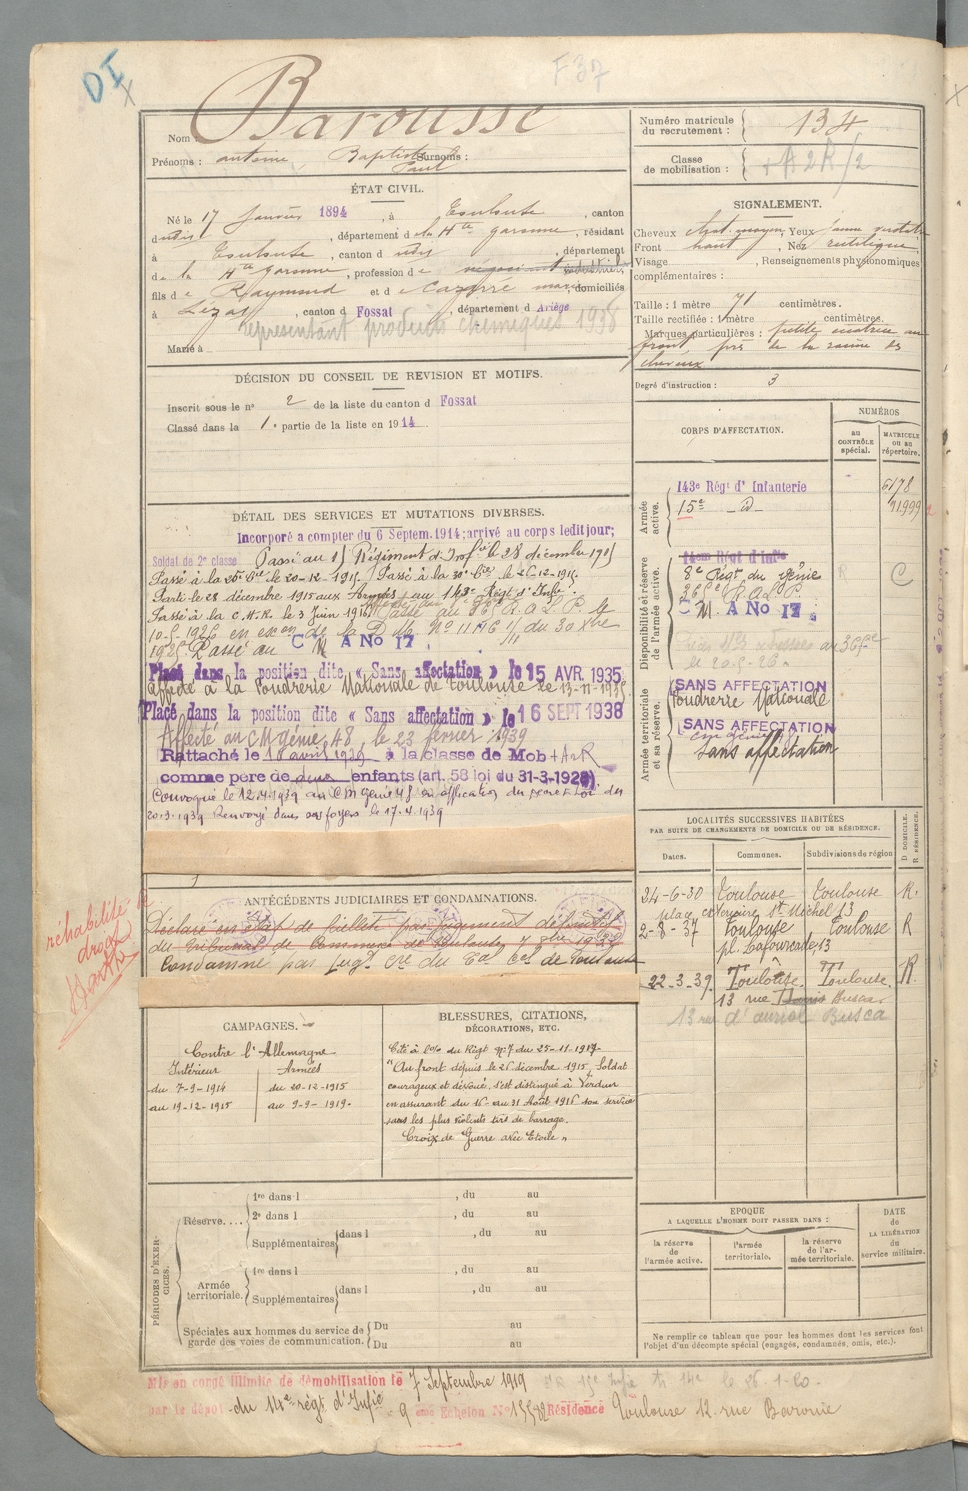 DI
F 37
Nom : Barousse
Prénoms : antoine Baptiste Paul Surnoms :
ÉTAT CIVIL.
Né le 17 Janvier 1894, à Toulouse, canton
dudit, département de la Hte garonne, résidant
à Toulouse, canton dudit, département
de la Hte garonne, profession de négociant industriel
fils de Raymond et de Cazarre, domiciliés
à Lézat, canton d Fossat, département d Ariège
représentant produits chimiques 1938
Marié à
DÉCISION DU CONSEIL DE REVISION ET MOTIFS.
Inscrit sous le n° 2 de la liste du canton d Fossat
Classé dans la 1e partie de la liste en 1914.
DÉTAIL DES SERVICES ET MUTATIONS DIVERSES.
Incorporé a compter du 6 Septem. 1914; arrivé au corps ledit jour;
Soldat de 2e classe Passé au 15 Régiment d'Infie le 28 décembre 1915
Passé à la 25e Cie le 20-12-1915. Passé à la 30e Cie le 26-12-1915.
Parti le 28 décembre 1915 aux Armées au 143e Régt d'Infie.
Passé à la C.H.R. le 3 Juin 1916
10-5-1926 en exon de la D.M. N° 11416 1/11 du 30 Xbre
1925 Passé au C M A No 17
Placé dans la position dite « Sans affectation » le 15 AVR. 1935
affecté à la Poudrerie Nationale de Toulouse le 13-11-1935
Placé dans la position dite « Sans affectation » le 16 SEPT 1938
Affecté au CM génie 48 le 23 février 1939
Rattaché le 18 avril 1939 à la classe de Mob + A2R
comme père de deux enfants (art. 58 loi du 31-3-1928)
Convoqué le 12.4.1939 au CM Génie 48 en application du décret Loi du
20-3-1939 Renvoyé dans ses foyers le 17.4.1939
ANTÉCÉDENTS JUDICIAIRES ET CONDAMNATIONS.
Déclaré en état de faillite par jugement définitif
du tribunal de Commerce de Toulouse
Condamné par Jugt
réhabilité de
droit
CAMPAGNES.
Contre l'Allemagne
Intérieur Armées
du 7-9-1914 du 20-12-1915
au 19-12-1915 au 9-9-1919.
BLESSURES, CITATIONS,
DÉCORATIONS, ETC.
Cité à l'o/ du Régt N°7 du 25-11-1917
"Au front depuis le 26 décembre 1915, Soldat
courageux et dévoué, s'est distingué à Verdun
en assurant du 16 au 31 Août 1916 son service
sous les plus violents tirs de barrage.
Croix de Guerre avec Etoile "
PÉRIODES D'EXERCICES.
Réserve....
1re dans l , du au
2e dans l , du au
Supplémentaires dans l , du au
Armée territoriale.
1re dans l , du au
Supplémentaires dans l , du au
Spéciales aux hommes du service de garde des voies de communication.
Du au
Du au
Mis en congé illimité de démobilisation le 7 Septembre 1919
par le dépôt du 14e régt d'Infie 9 eme Echelon N° 15572 Résidence Toulouse 12 rue Baronie
Numéro matricule du recrutement : 134
Classe de mobilisation : + A 2 R/2
SIGNALEMENT.
Cheveux chat. moyen, Yeux
Front haut, Nez rectiligne,
Visage , Renseignements physionomiques
complémentaires :
Taille : 1 mètre 71 centimètres.
Taille rectifiée : 1 mètre centimètres.
Marques particulières : petite cicatrice au
front près de la racine des
cheveux
Degré d'instruction : 3
CORPS D'AFFECTATION.
NUMÉROS
au CONTRÔLE spécial.
MATRICULE OU AU répertoire.
Armée active.
143e Régt d' Infanterie 6178
15e d° 11999
Disponibilité et réserve de l'armée active.
14em Régt d'Infie
8e Régt du génie
C M A No 17
C
Armée territoriale et sa réserve.
SANS AFFECTATION
Poudrerie Nationale
SANS AFFECTATION
cm génie 48
Sans affectation
LOCALITÉS SUCCESSIVES HABITÉES
PAR SUITE DE CHANGEMENTS DE DOMICILE OU DE RÉSIDENCE.
Dates. Communes. Subdivisions de région D DOMICILE. R RÉSIDENCE.
24-6-30 Toulouse Toulouse R.
place St Michel 13
2-8-37 Toulouse Toulouse R
pl. Lafourcade, 13
22-3-39 Toulouse. Toulouse. R.
13 rue Busca.
13 rue d'auriol Busca
EPOQUE
A LAQUELLE L'HOMME DOIT PASSER DANS :
la réserve de l'armée active.
l'armée territoriale.
la réserve de l'armée territoriale.
DATE de LA LIBÉRATION du service militaire.
Ne remplir ce tableau que pour les hommes dont les services font
l'objet d'un décompte spécial (engagés, condamnés, omis, etc.).